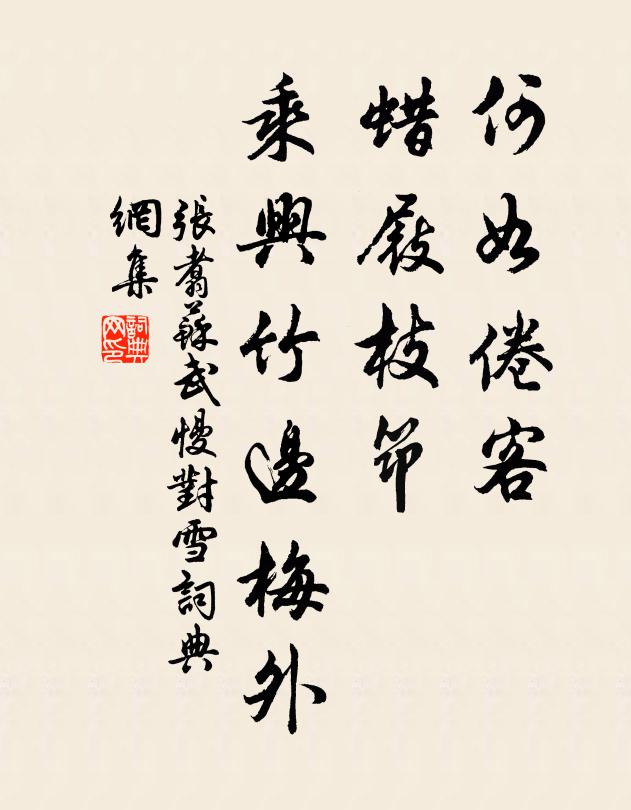 何如倦客
蜡屐枝筇
乘興竹邊梅外
張翥蘇武慢對雪詞典
網集
詞典
网印